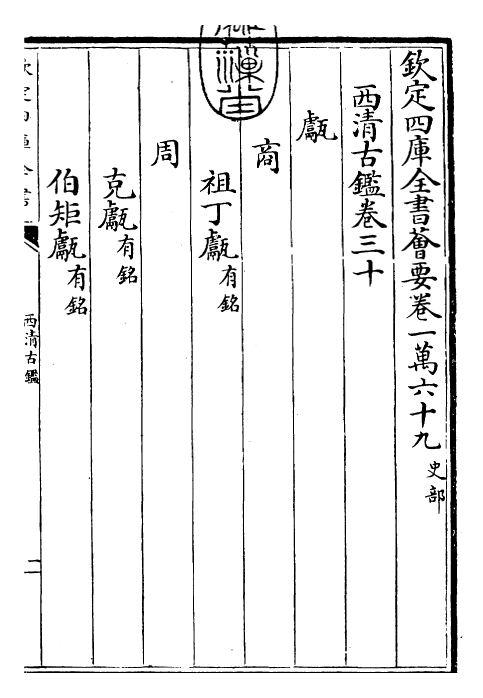 欽定四庫全書薈要卷一萬六十九史部
西清古鑑卷三十
甗
商
祖丁甗有銘
周
克甗有銘
伯矩甗有銘
西清古鑑